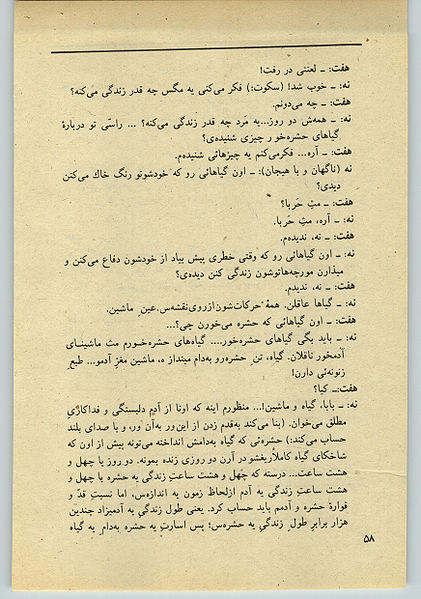 هفت: ـ لعنتی در رفت!
نه: ـ خوب شد! (سکوت:) فکر می‌کنی یه مگس چه قدر زندگی می‌کنه؟
هفت: ـ چه می‌دونم.
نه: ـ همه‌ش دو روز...یه مَرد چه قدر زندگی می‌کنه؟ ... راستی تو دربارهٔ
گیاهای حشره‌خور چیزی شنیده‌ی؟
هفت: ـ آره... فکرمی‌کنم یه چیزهائی شنیده‌م.
نه (ناگهان و با هیجان): ـ اون گیاهائی رو که خودشونو رنگ خاك می‌کنن
دیدی؟
هفت: ـ مثِ حَربا؟
نه: ـ آره، مثِ حَربا.
هفت: ـ نه، ندیده‌م.
نه: ـ اون گیاهائی رو که وقتی خطری پیش بیاد از خودشون دفاع می‌کنن و
میذارن مورچه‌هاتوشون زندگی کنن دیده‌ی؟
هفت: ـ نه، ندیدم.
نه: ـ گیاها عاقلن. همهٔ حرکات‌شون ازروی نقشه‌س، عین ماشین.
هفت: ـ اون گیاهائی که حشره می‌خورن چی؟...
نه: ـ باید بگی گیاهای حشره‌خور.... گیاه‌های حشره‌خورم مث ماشینای
آدمخور ناقلان. گیاه، تنِ حشره‌رو به‌دام میندازه، ماشین مغزِ آدمو... طبعِ
زنونه‌ئی دارن!
هفت:ـ کیا؟
نه: ـ بابا، گیاه و ماشین!... منظورم اینه که اونا از آدم دلبستگی و فداکاریِ
مطلق می‌خوان. (بنا می‌کند به‌قدم زدن از این‌ور به‌آن ور، و با صدای بلند
حساب می‌کند:) حشره‌ئی که گیاه به‌دامش انداخته می‌تونه پیش از اون که
شاخکای گیاه کاملاً ریغشو در آرن دو روزی زنده بمونه. دو روز یا چهل و
هشت ساعت... درسته که چهل و هشت ساعتِ زندگی یه حشره با چهل و
هشت ساعتِ زندگی یه آدم ازلحاظ زمون یه اندازه‌س، اما نسبتِ قدّ و
قوارهٔ حشره و آدمم باید حساب کرد. یعنی طول زندگیِ یه آدمیزاد چندین
هزار برابرِ طولِ زندگیِ یه حشره‌س؛ پس اسارتِ یه حشره به‌دامِ یه گیاه
۵۸